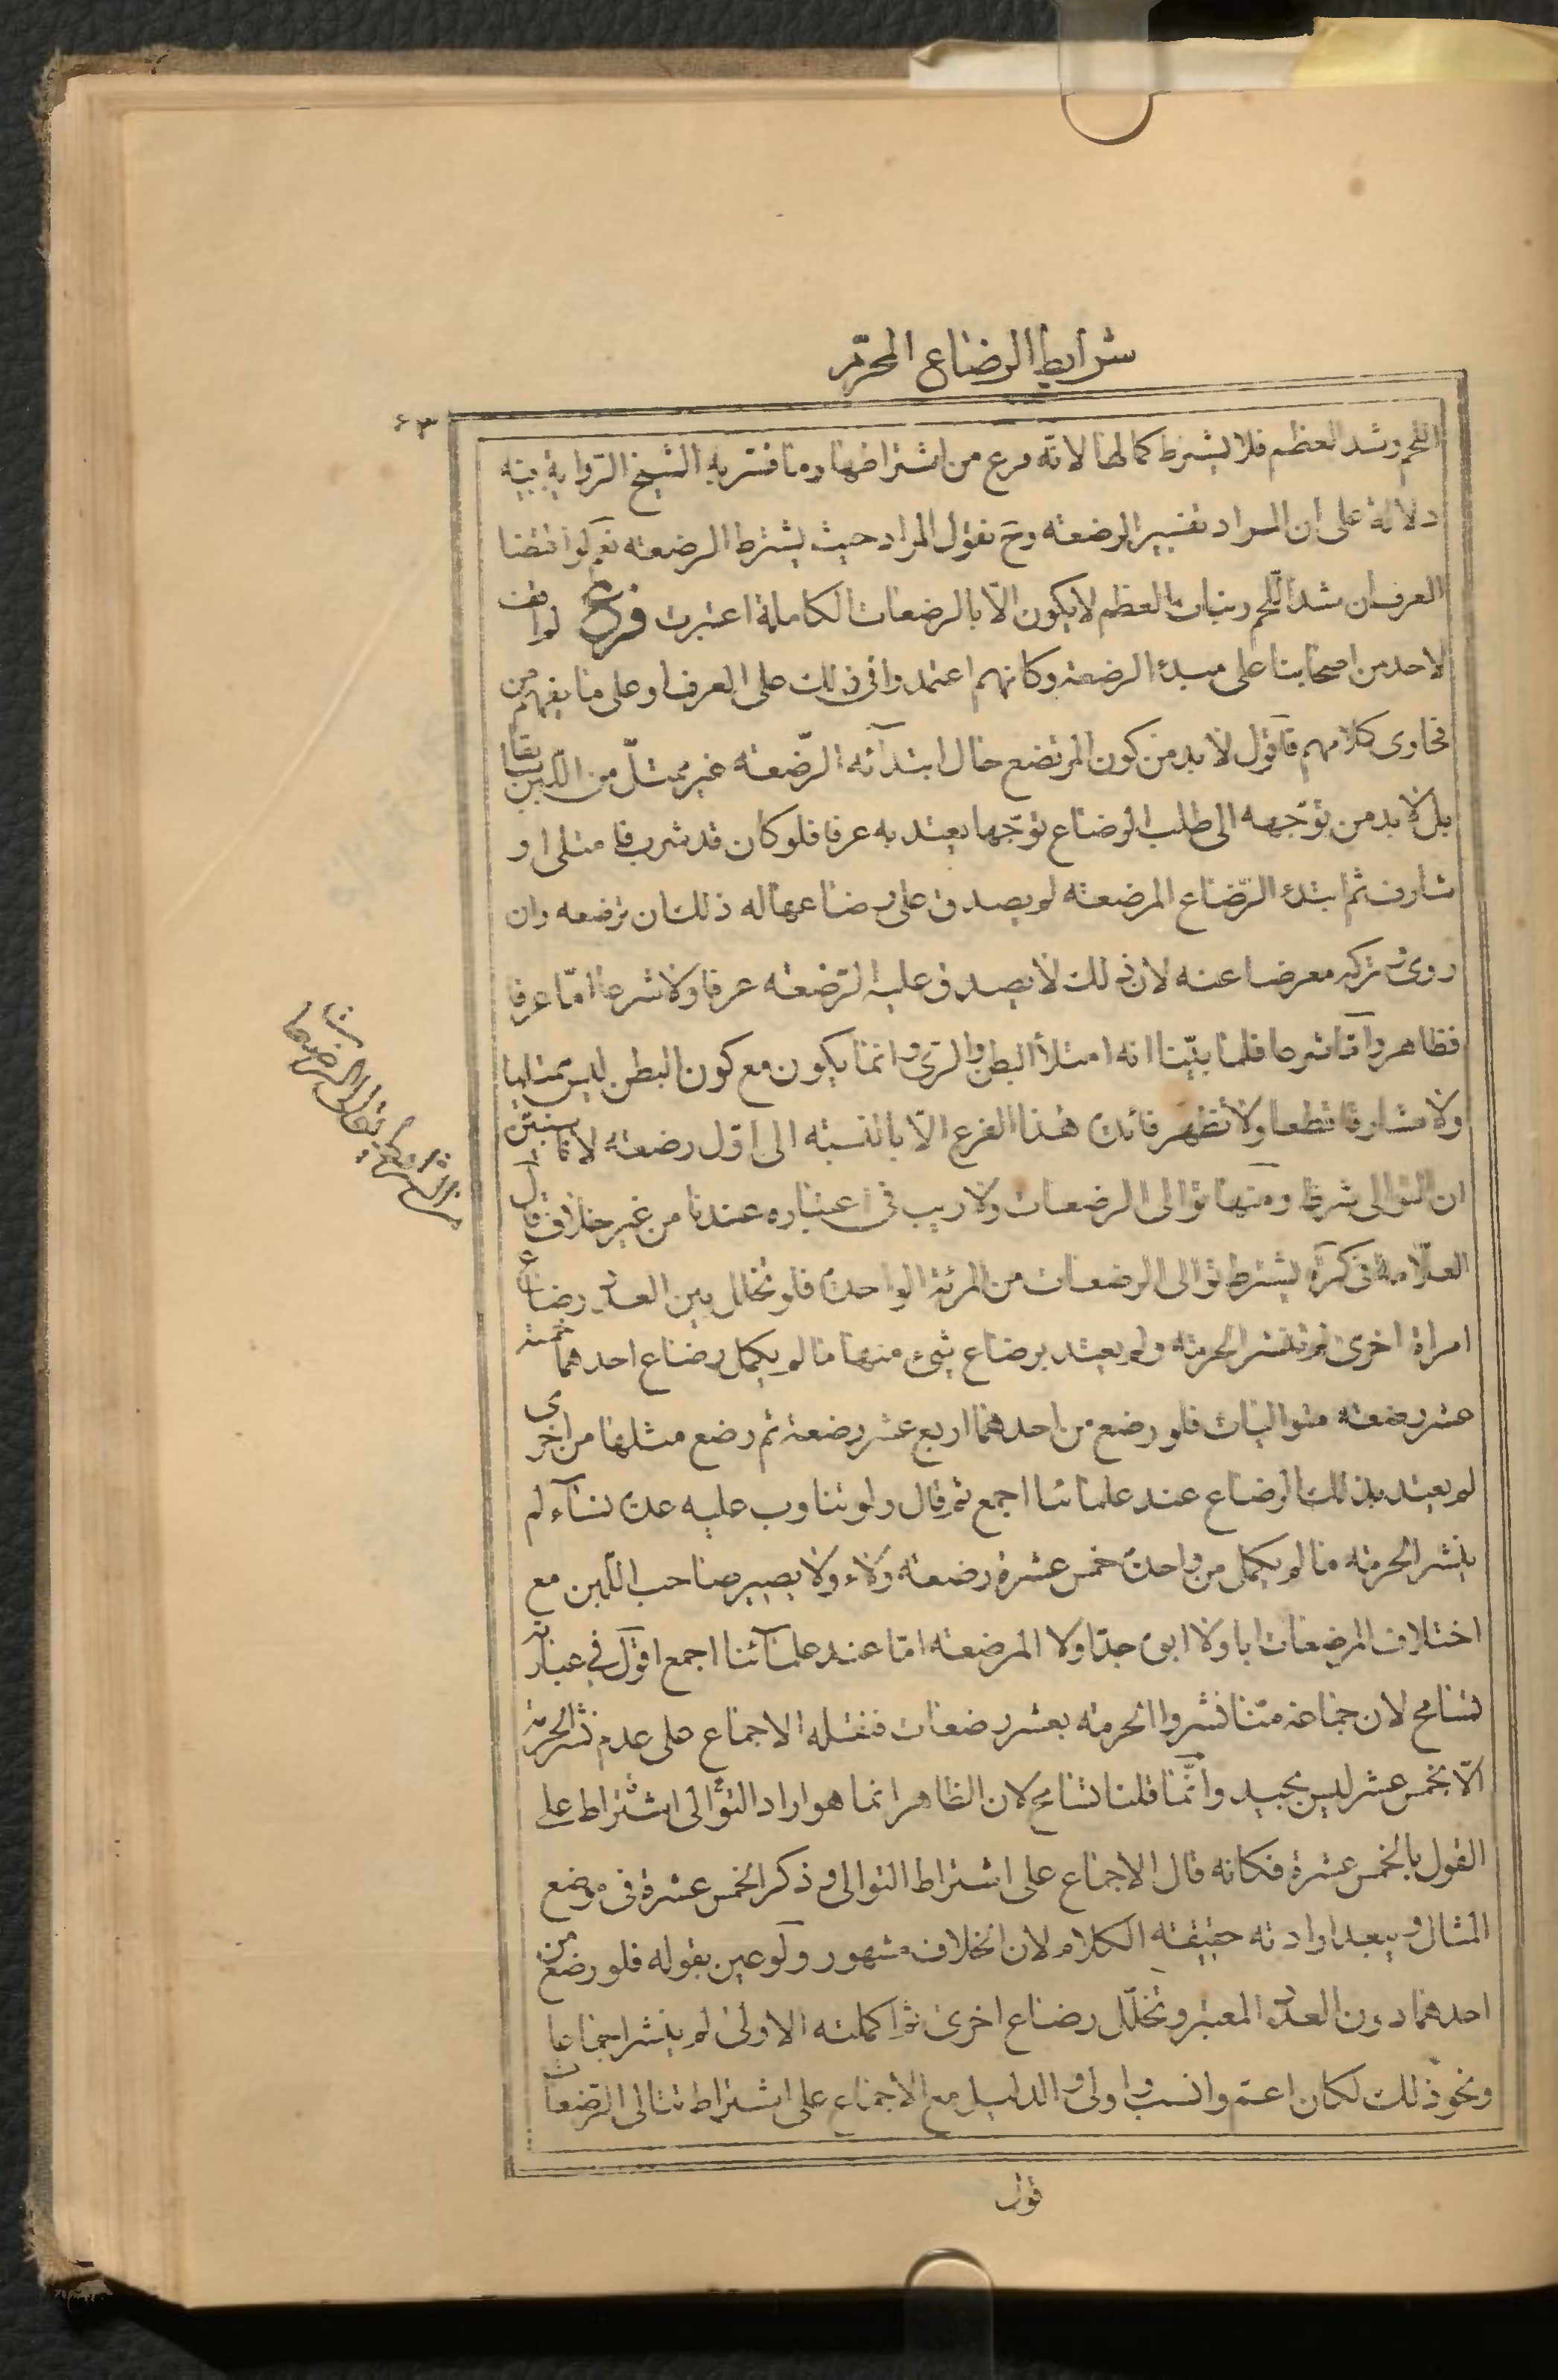 شرايط الرضاع المحرّم
٦٣
اللحم وشد العظم فلا يشترط كمالها لانّه فرع من اشتراطها وما فسّر به الشيخ الرّواية فيه
دلالة على ان المراد تفسير الرضعة وحَ نقول المراد حيث يشترط الرضعة نعم لو اقتضا
العرف ان شد اللّحم ونبات العظم لا يكون الّا بالرضعات الكاملة اعتبرت فرع لم اقف
لاحد من اصحابنا على مبدء الرضعة وكانهم اعتمدوا فى ذلك على العرف او على ما يفهم من
فحاوى كلامهم فاقول لا بد من كون المرتضع حال ابتدائه الرّضعة غير ممتلّ من اللّبن
بل لا بد من توجّهه الى طلب الرضاع توجّها يعتد به عرفا فلو كان قد شرب فامتلى او
شارف ثم ابتدء الرّضاع المرضعة لم يصدق على رضاعها له ذلك ان ترضعه وان
روى ثم تركه معرضا عنه لان ذلك لا يصدق عليه الرّضعة عرفا ولا شرعا امّا عرفا
فظاهر وامّا شرعا فلما بيّنا انه امتلأ البطن والرى وانما يكون مع كون البطن ليس ممتليا
ولا مشارفا قطعا ولا تظهر فائدة هذا الفرع الّا بالنسبة الى اوّل رضعة لانا سنبيّن
ان التوالى شرط ومنها توالى الرضعات ولا ريب فى اعتباره عندنا من غير خلاف قال
العلّامة فى كرة يشترط توالى الرضعات من المرئة الواحدة فلو تخلل بين العدد رضاع
امراة اخرى لم تنشر الحرمة ولم يعتد برضاع شىء منهما ما لم يكمل رضاع احدهما خمسة
عشر رضعة متواليات فلو رضع من احدهما اربع عشر رضعة ثم رضع مثلها من اخرى
لم يعتد بذلك الرضاع عند علمائنا اجمع ثم قال ولو تناوب عليه عدة نساء لم
ينشر الحرمة ما لم يكمل من واحدة خمس عشرة رضعة ولاء ولا يصير صاحب اللّبن مع
اختلاف المرضعات ابا ولا ابوه جدّا ولا المرضعة امّا عند علمائنا اجمع اقول في عبارته
تسامح لان جماعة منّا نشروا الحرمة بعشر رضعات فنقله الاجماع على عدم نشر الحرمة
الّا بخمس عشر ليس بجيد وانّما قلنا تسامح لان الظاهر انما هو اراد التوالى اشتراط على
القول بالخمس عشرة فكانه قال الاجماع على اشتراط التوالى وذكر الخمس عشرة فى موضع
المثال ويبعد ارادته حقيقة الكلام لان الخلاف مشهور ولو عين بقوله فلو رضع من
احدهما دون العدد المعتبر وتخلّل رضاع اخرى ثم اكملته الاولى لم ينشر اجماعا
ونحو ذلك لكان اعمّ وانسب واولى والدليل مع الاجماع على اشتراط تتالى الرّضعات
قول